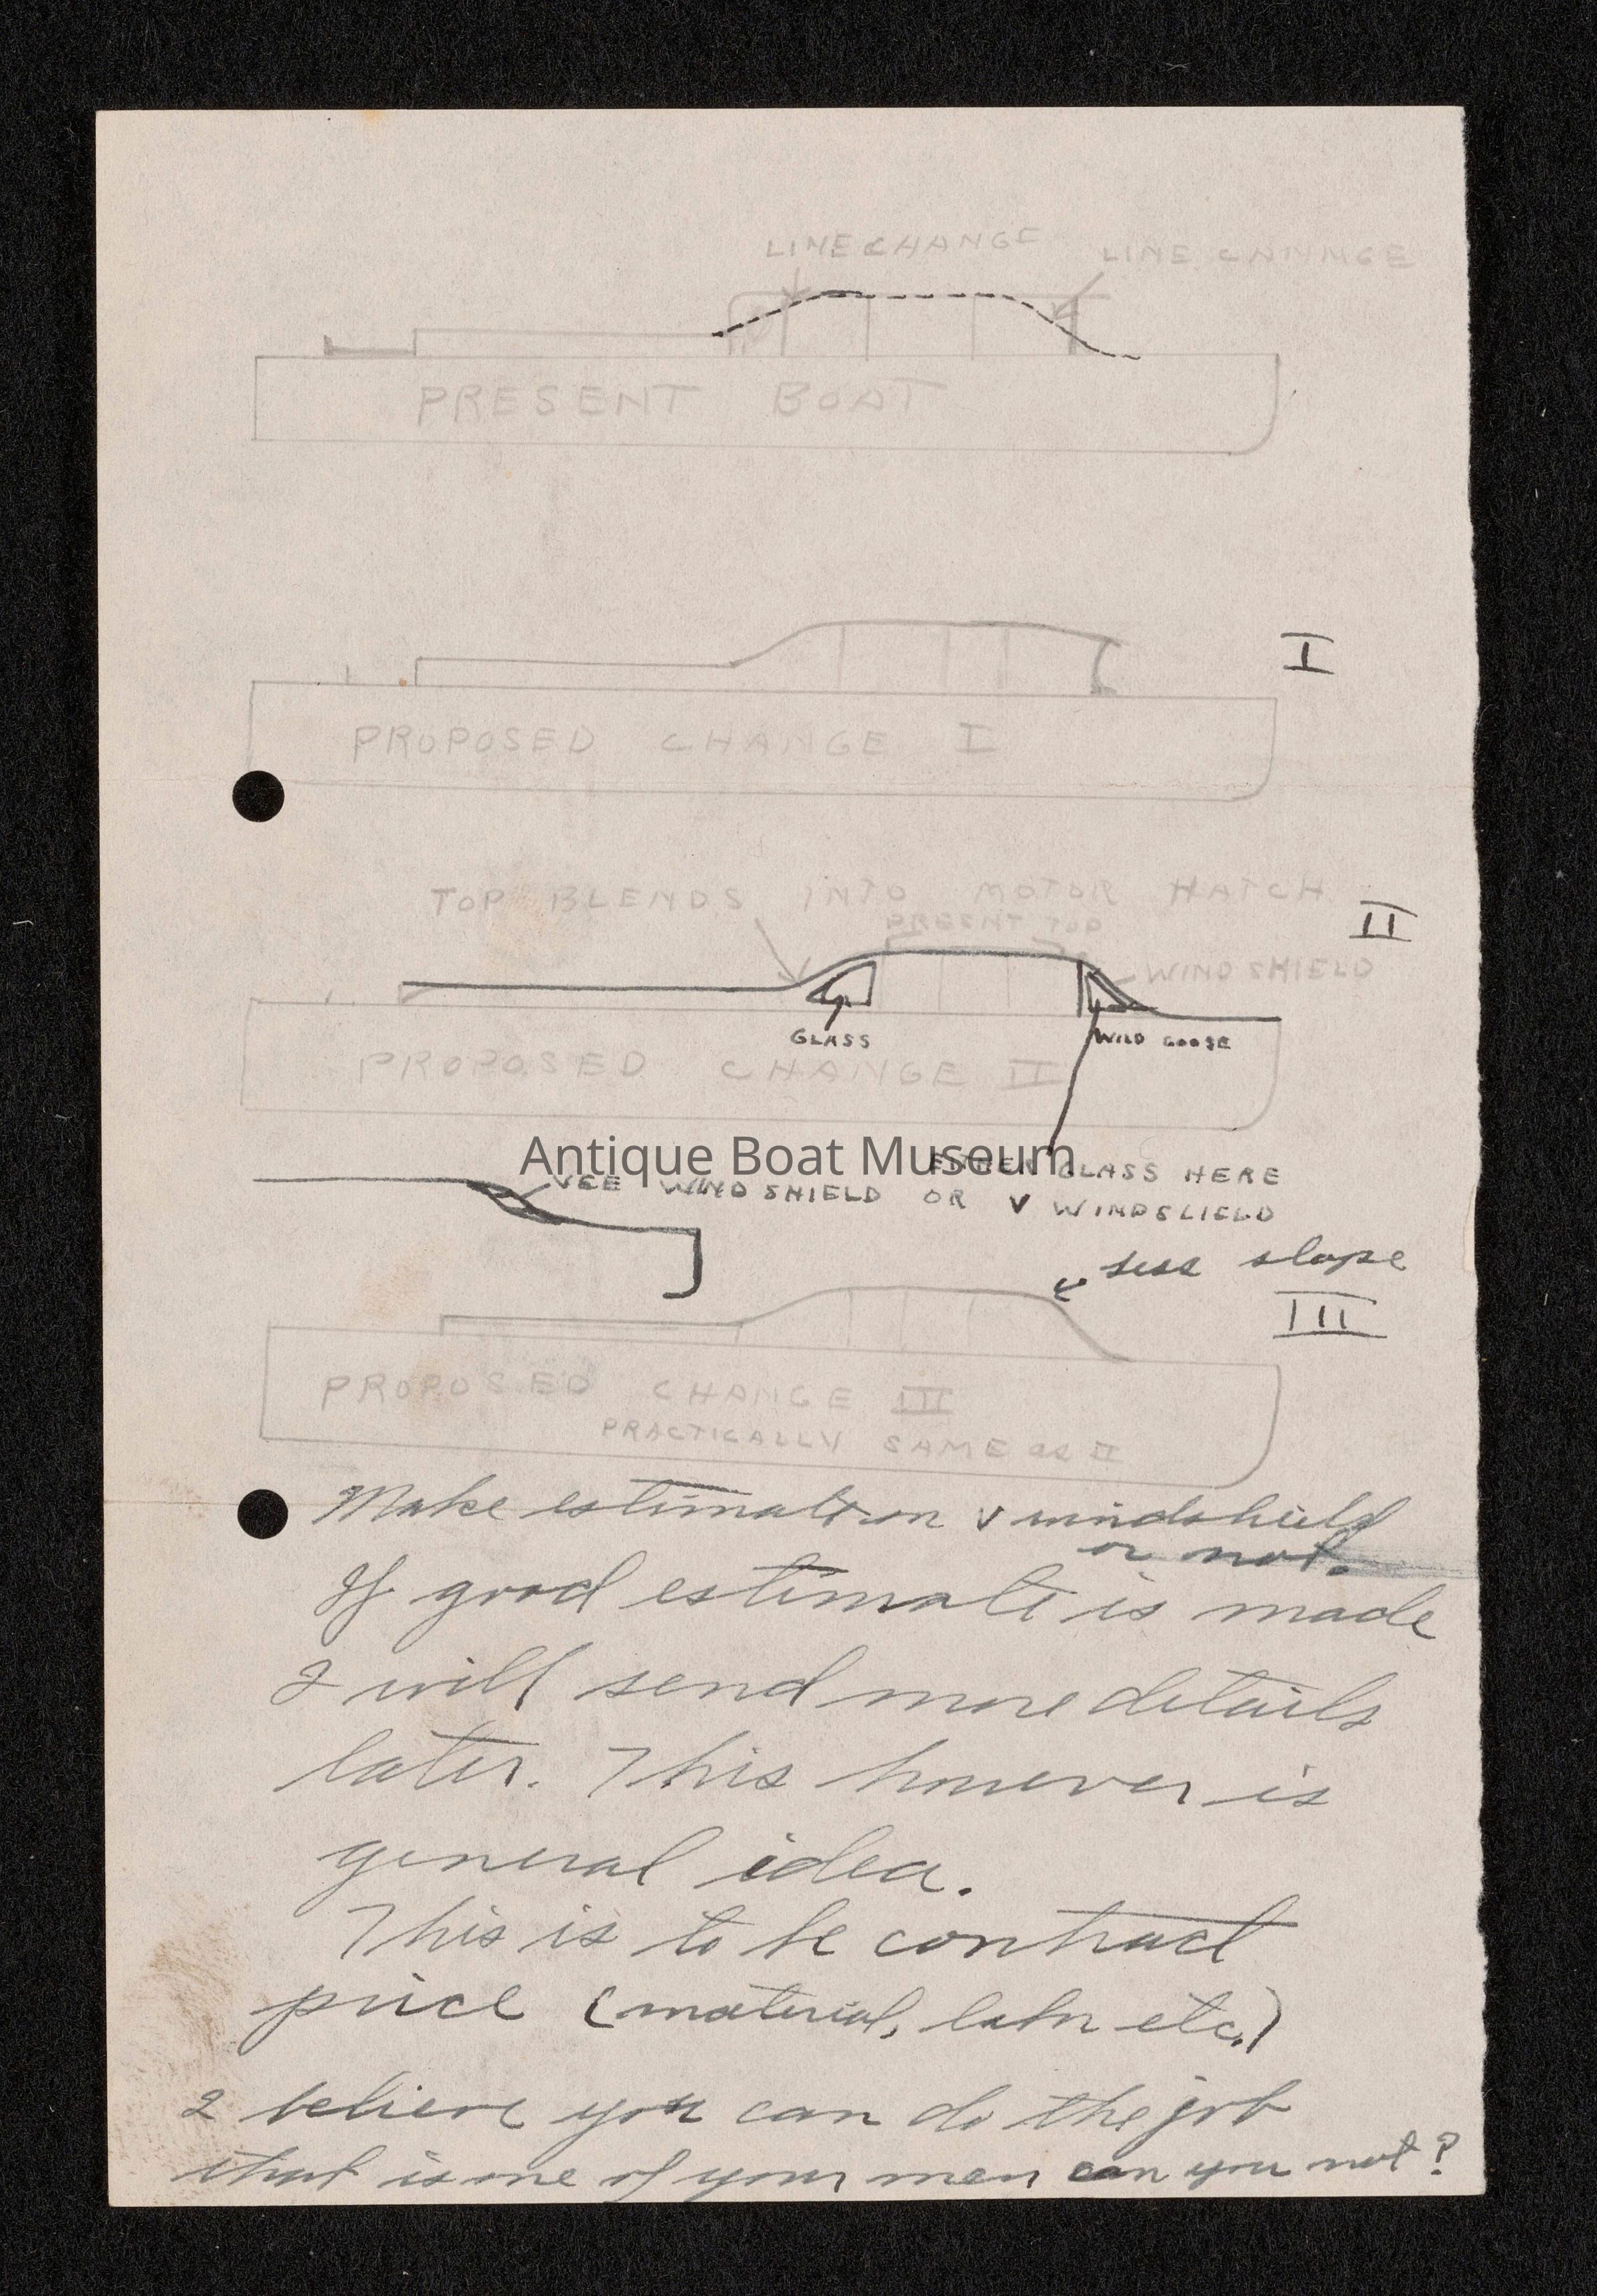 LINE CHANGE LINE CHANGE
PRESENT BOAT
I
PROPOSED CHANGE I
TOP BLENDS INTO MOTOR HATCH
II
PRESENT TOP
WINDSHIELD
GLASS
WILD GOOSE
PROPOSED CHANGE II
Antique Boat Museum
EITHER GLASS HERE
VEE WINDSHIELD OR V WINDSLIELD
less slope
III
PROPOSED CHANGE III
PRACTICALLY SAME as II
Make estimate on v windshield
or not.
If good estimate is made
I will send more details
later. This however is
general idea.
This is to be contract
price (material, labor etc.)
I believe you can do the job
that is one of your men can you not?